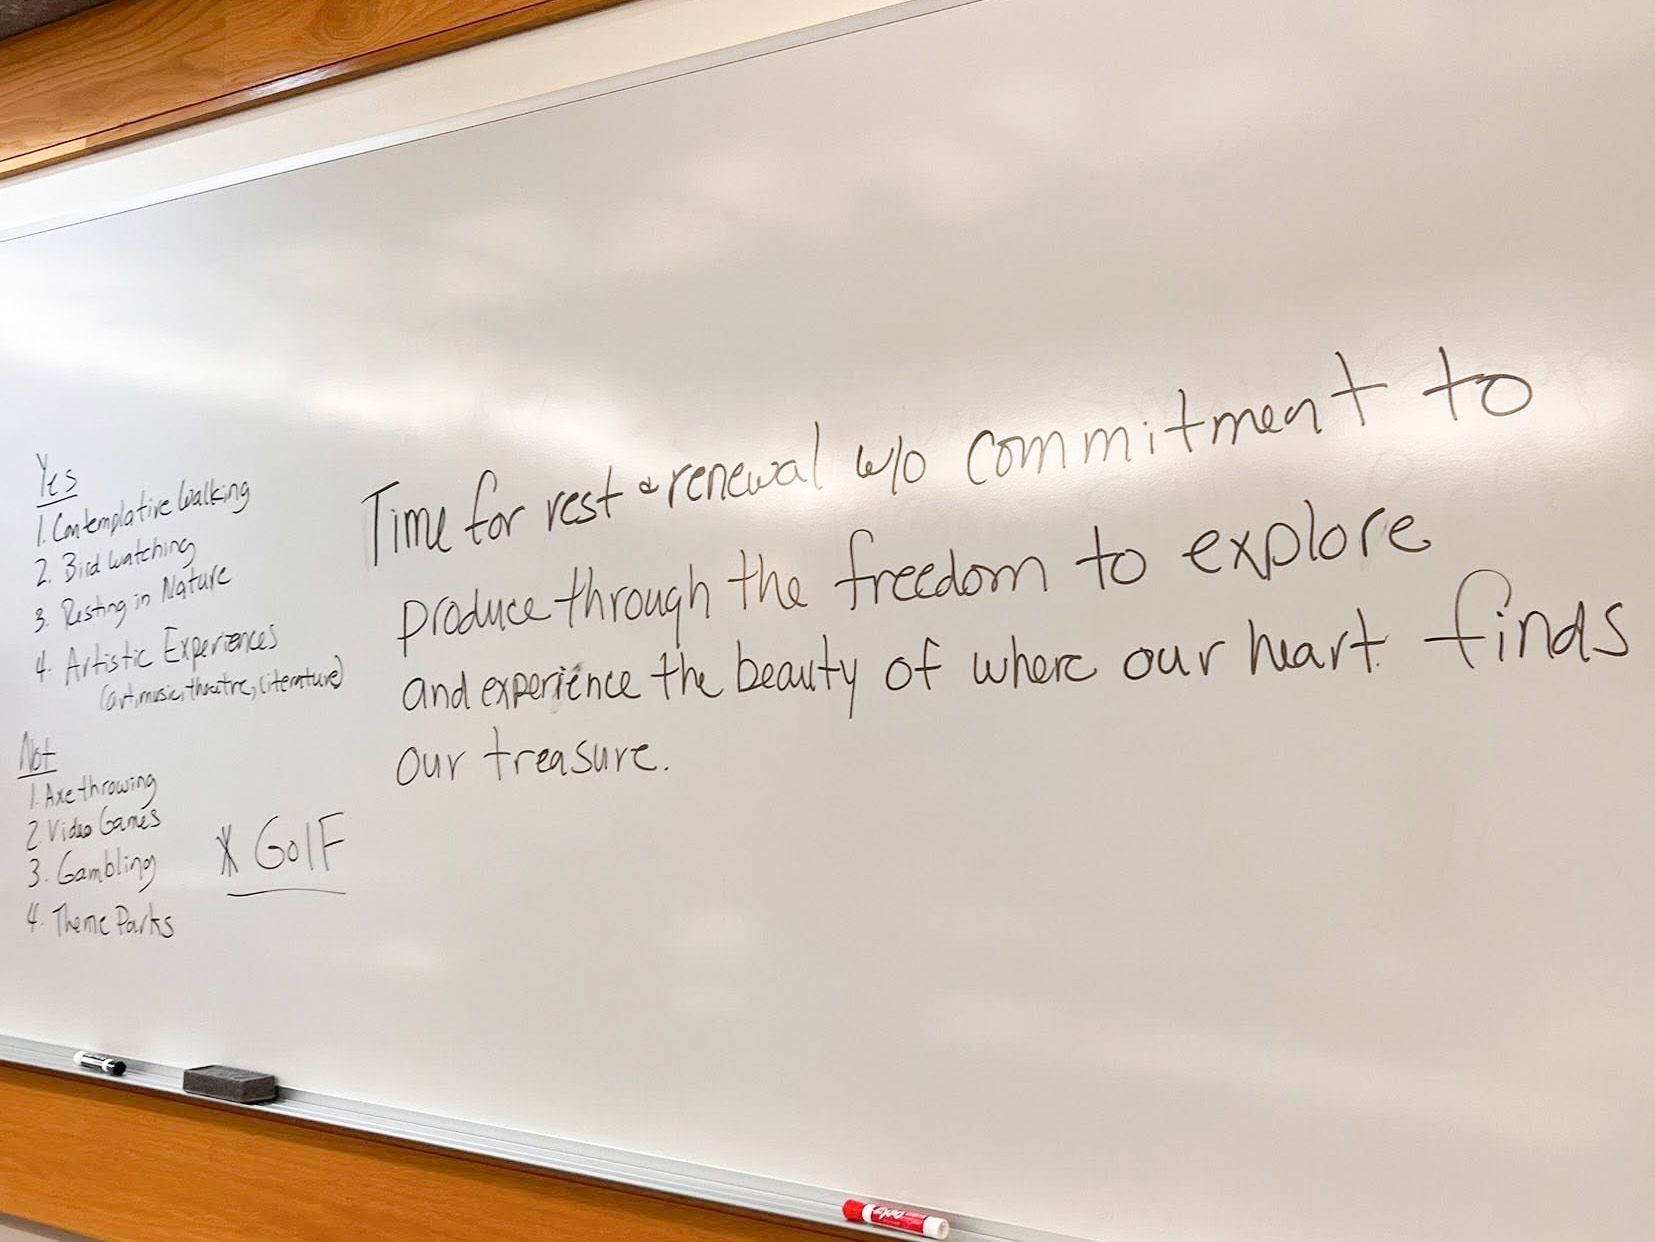 Yes
1. Contemplative Walking
2. Bird watching
3. Resting in Nature
4. Artistic Experiences
(art, music, theatre, literature)
Not
1. Axe throwing
2. Video Games
3. Gambling
4. Theme Parks
* GOlF
Time for rest & renewal w/o commitment to
produce through the freedom to explore
and experience the beauty of where our heart finds
our treasure.
EXPO